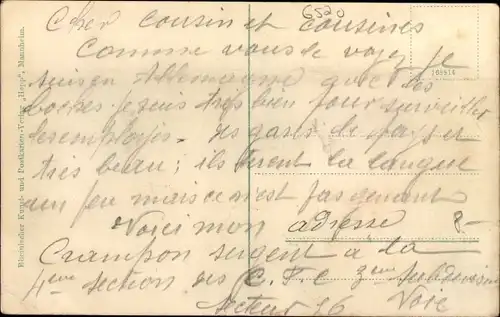 6520
Cher cousin et cousines
Comme vous le voyez je
suis en Allemagne avec les
boches je suis très bien pour surveiller
les employés. Les gares de pays et
très beau; ils tirent la langue
un peu mais ce n'est pas genant
Voici mon adresse 8-
Crampon sergent a la
4eme section des C. F. C 3eme Subdivision
Secteur 16 Voie
205914
Rheinischer Kunst- und Postkarten-Verlag „Hepp“, Mannheim.